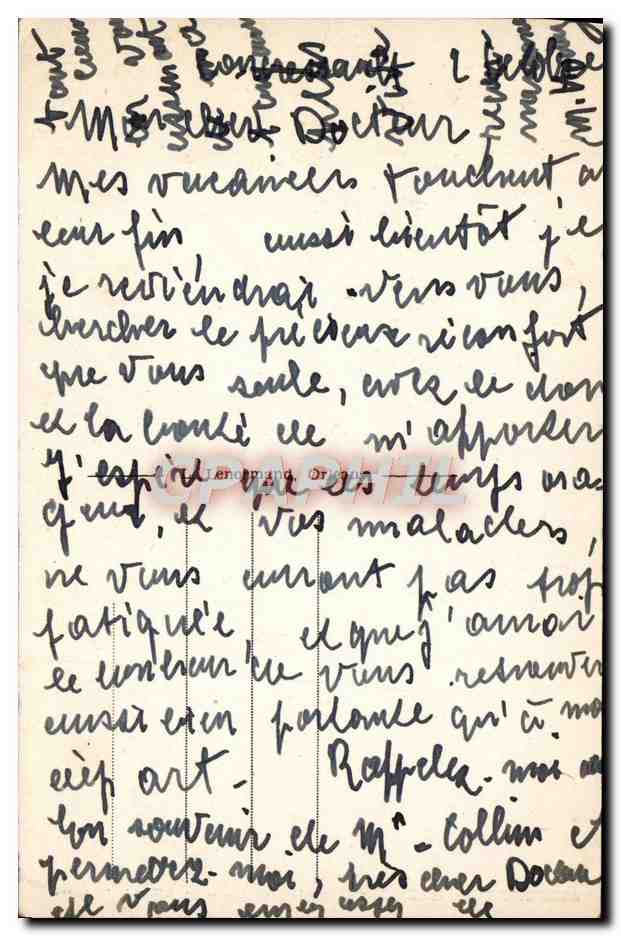 Mon cher Docteur
Mes vacances touchent a
leur fin, aussi bientôt je
je reviendrai vers vous,
chercher le précieux réconfort
que vous seule, avez le don
et la bonté de m'apporter
J'espère que les temps ora-
L. Lenormand, Orléans
CPAPHIL
geux, et vos malades,
ne vous auront pas trop
fatiguée, et que j'aurai
le bonheur de vous retrouver
aussi bien portante qu'à mon
départ - Rappelez-moi au
bon souvenir de Mr Collin et
permettez-moi, très cher Docteur
de vous